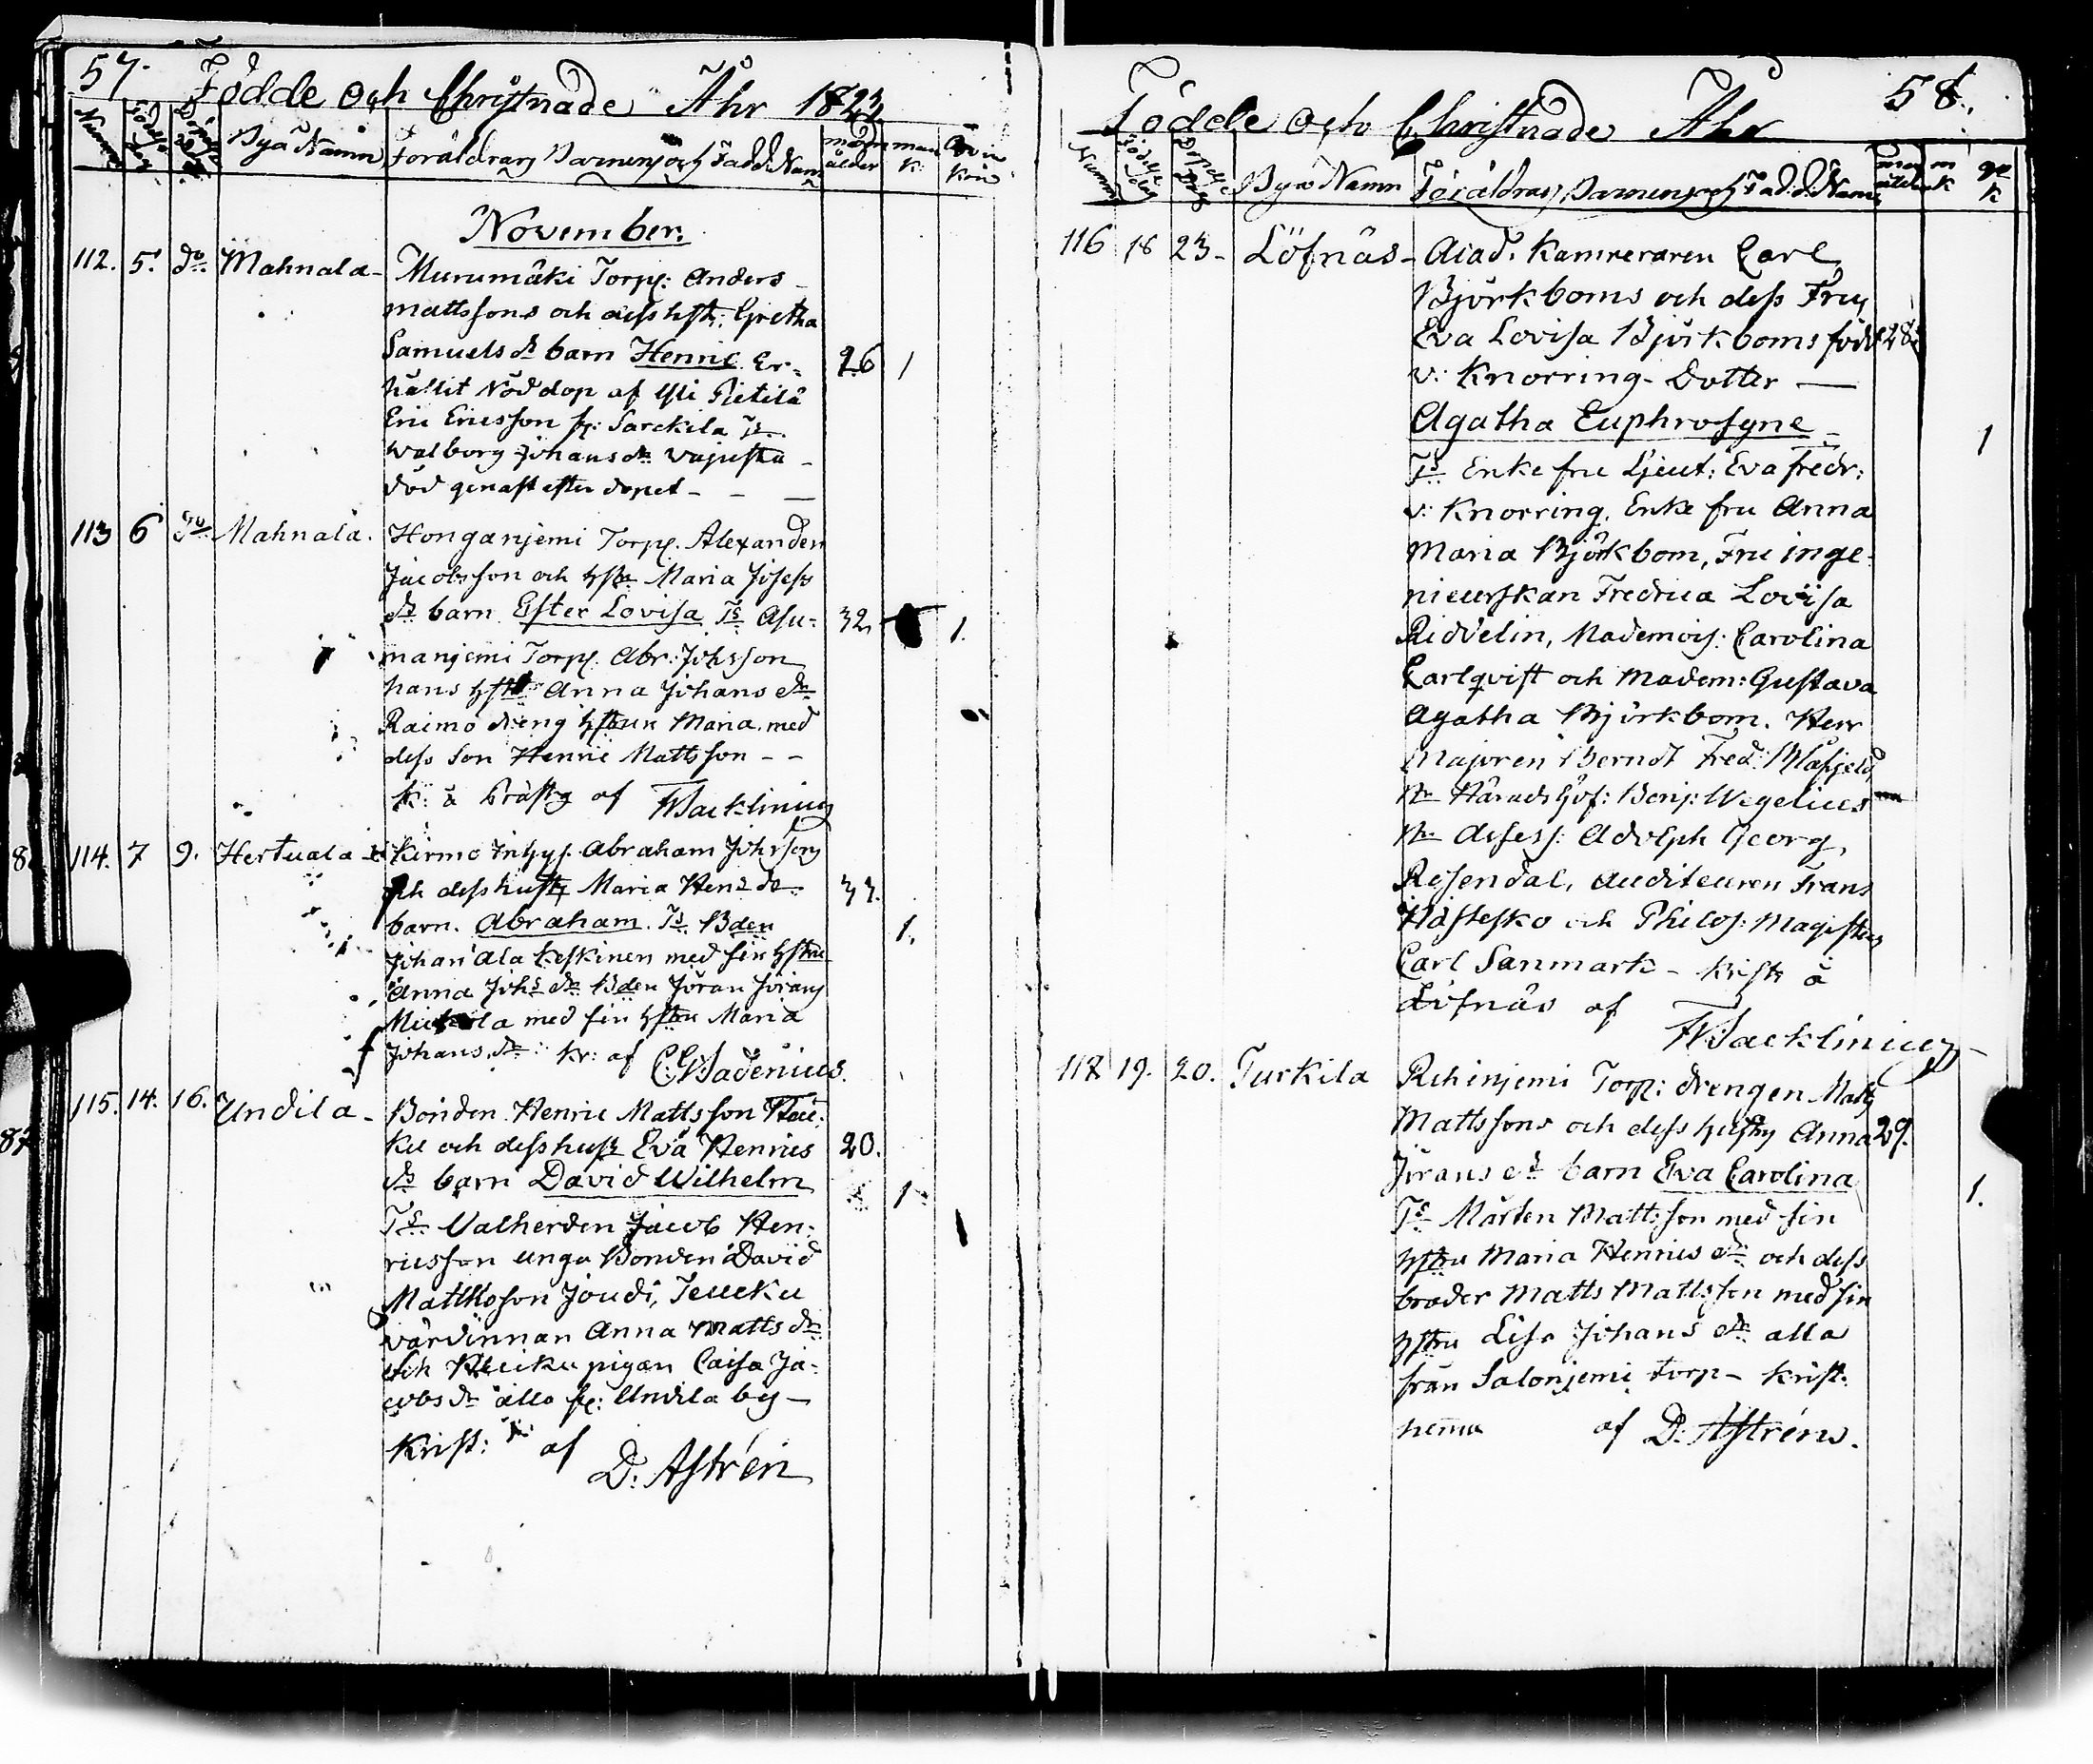 57.
Födde och Christnade Åhr 1823
Numer Födelse dag Döpelse dag Byä Namn Föräldrars Barnens och Fadd: Namn ålder man k: Qvin kön
November.
112. 5. do. Mahnala- Murumäki Torp: Anders
Mattssons och dess hst: Gretha
Samuels dr barn Henric Er= 26 1
hållit Nöddop af Yli Pietilä
Eric Ericsson fr: Sarckila Ts.
Walborg Johans dr
död genast efter dopet - - —
113 6 do. Mahnala. Honganjemi Torp. Alexander
Jacobsson och hstr Maria Josefs
dr barn Ester Lovisa Ts. Asu= 32. 1.
manjemi Torp. Abr: Johsson
hans hstr Anna Johans dr
Raimo dräng hstrun Maria med
dess Son Henric Mattsson - -
k: å Prästg af W Backlinius
114. 7 9. Hertuala Kirmo Abraham Johsson
och dess hustr Maria Henr dr 33.
barn. Abraham. Ts. Bden 1.
Johan Ala Keskinen med sin hstru
Anna Johs dr Bden Jöran Jörans
Mickola med sin hstru Maria
Johans dr: kr: af C. G. Badenius.
115. 14. 16. Undila- Bonden Henric Mattsson
och dess hustr Eva Henrics 20.
dr barn David Wilhelm 1
Ts. Valherden Jacob Hen=
ricsson unga Bonden David
Mattsson Joudi, Teucku
värdinnan Anna Matts dr
och pigan Caisa Ja=
cobs dr alla fr: Undila by -
Krist: af D. Astrén
58.
Födde och Christnade Åhr
Numer Födelse dag Döpelse dag Byä Namn Föräldrars, Barnens och Fad.d. Namn ålder m k qv k
116 18 23- Löfnäs- Acad. Kamreraren Carl
Björkboms och dess Fru
Eva Lovisa Björkboms född 28.
v: Knorring- Dotter —
Agatha Euphrosyne - 1
Ts. Enke fru Ljeut: Eva Fredr:
v: Knorring, Enke fru Anna
Maria Björkbom, Fru inge=
nieurskan Fredrica Lovisa
Riddelin, Mademois: Carolina
Carlqvist och Madem: Gustava
Agatha Björkbom. Herr
Majoren Berndt Fred: Blåfjeld
Hr Härads höf: Benj: Wegelius
Hr Assess: Adolph Georg
Rosendal, Auditeuren Frans
Hästesko och Philos: Magistern
Carl Sanmark - Kristr å
Löfnäs af W Backlinius
117 19. 20. Turkila Rihinjemi Torp: drengen Matts
Mattssons och dess hustru Anna 29.
Jörans dr barn Eva Carolina 1.
Ts. Mårten Mattsson med sin
hstru Maria Henrics dr: och dess
broder Matts Mattsson med sin
hstru Lisa Johans dr alla
från Salonjemi torp - Krist.
hemma af D: Astrén.